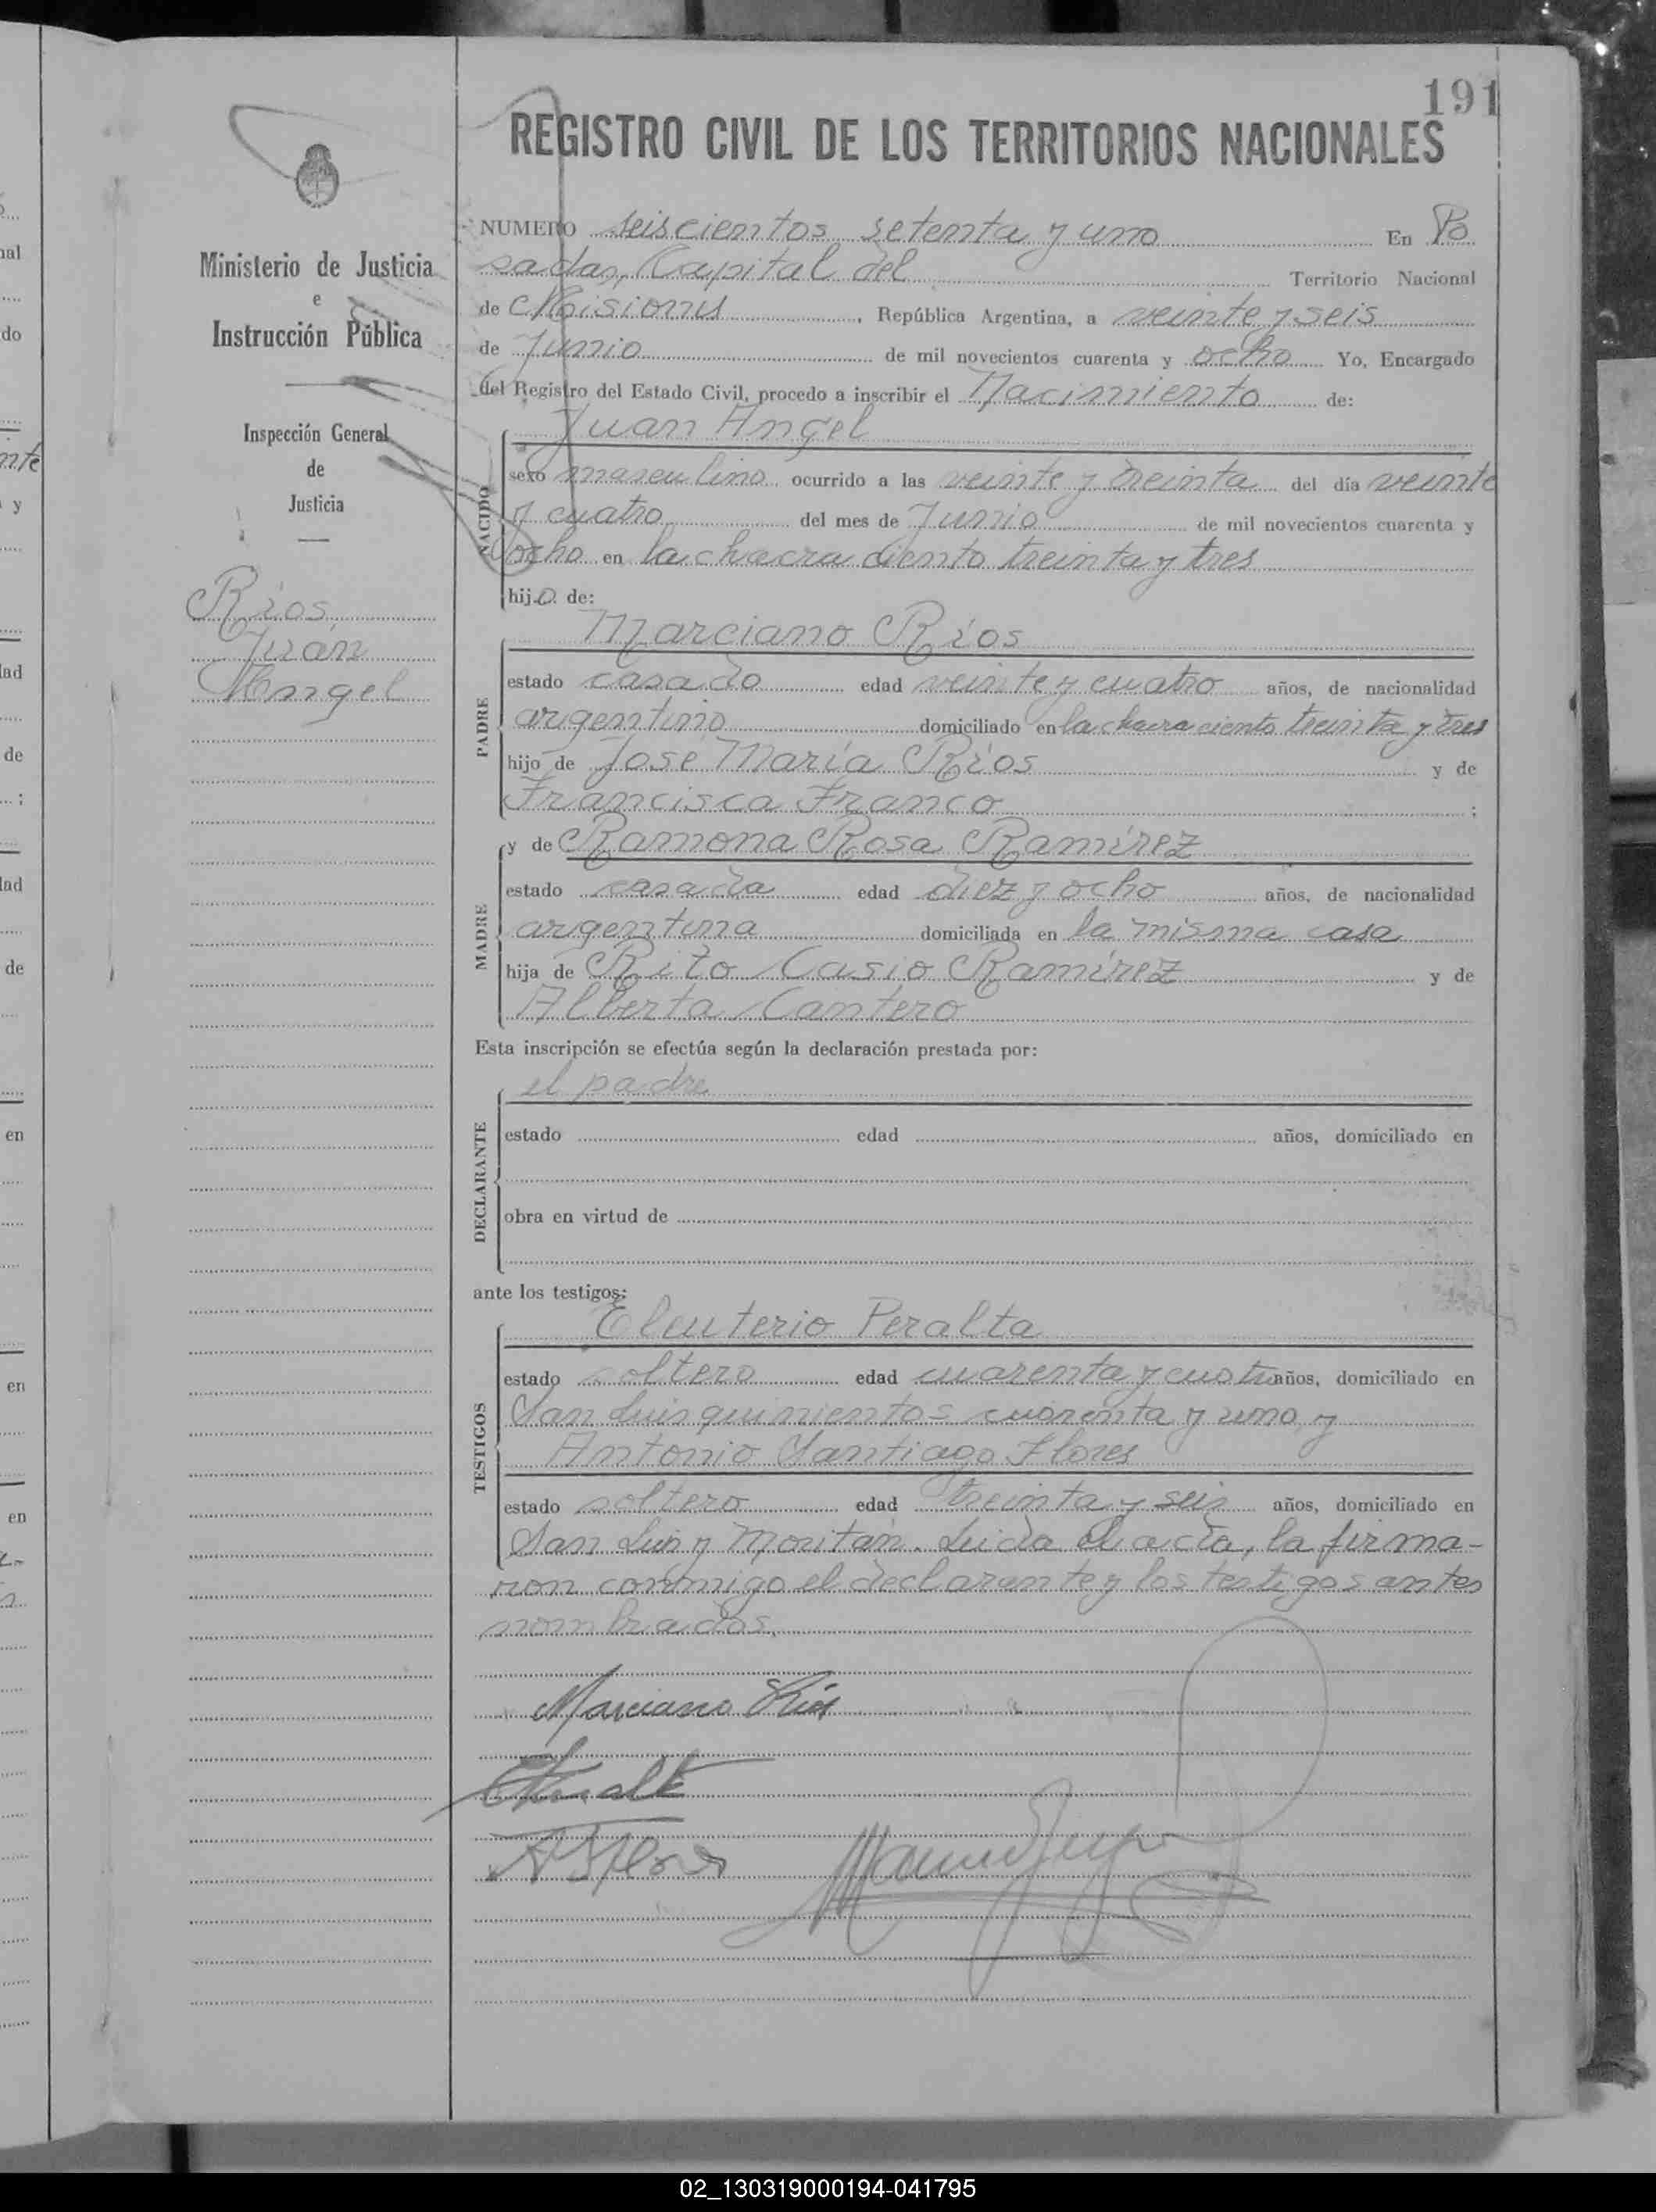 191
REGISTRO CIVIL DE LOS TERRITORIOS NACIONALES
Ministerio de Justicia
e
Instrucción Pública
Inspección General
de
Justicia
Ríos
Juan
Angel
NUMERO seiscientos setenta y uno En Po
sadas, Capital del Territorio Nacional
de Misiones, República Argentina, a veinte y seis
de Junio de mil novecientos cuarenta y ocho Yo, Encargado
del Registro del Estado Civil, procedo a inscribir el Nacimiento de:
NACIDO
Juan Angel
sexo masculino ocurrido a las veinte y treinta del día veinte
y cuatro del mes de Junio de mil novecientos cuarenta y
ocho en la chacra ciento treinta y tres
hijo de:
PADRE
Marciano Ríos
estado casado edad veinte y cuatro años, de nacionalidad
argentino domiciliado en la chacra ciento treinta y tres
hijo de José María Ríos y de
Francisca Franco ;
MADRE
y de Ramona Rosa Ramírez
estado casada edad diez y ocho años, de nacionalidad
argentina domiciliada en la misma casa
hija de Rito Casio Ramírez y de
Alberta Cantero
Esta inscripción se efectúa según la declaración prestada por:
DECLARANTE
el padre
estado edad años, domiciliado en
obra en virtud de
ante los testigos:
TESTIGOS
Eleuterio Peralta
estado soltero edad cuarenta y cuatro años, domiciliado en
San Luis quinientos cuarenta y uno y
Antonio Santiago Flores
estado soltero edad treinta y seis años, domiciliado en
San Luis y Moritán. Leida el acta, la firma-
ron conmigo el declarante y los testigos antes
nombrados.
Marciano Ríos
A S Flores
02_130319000194-041795